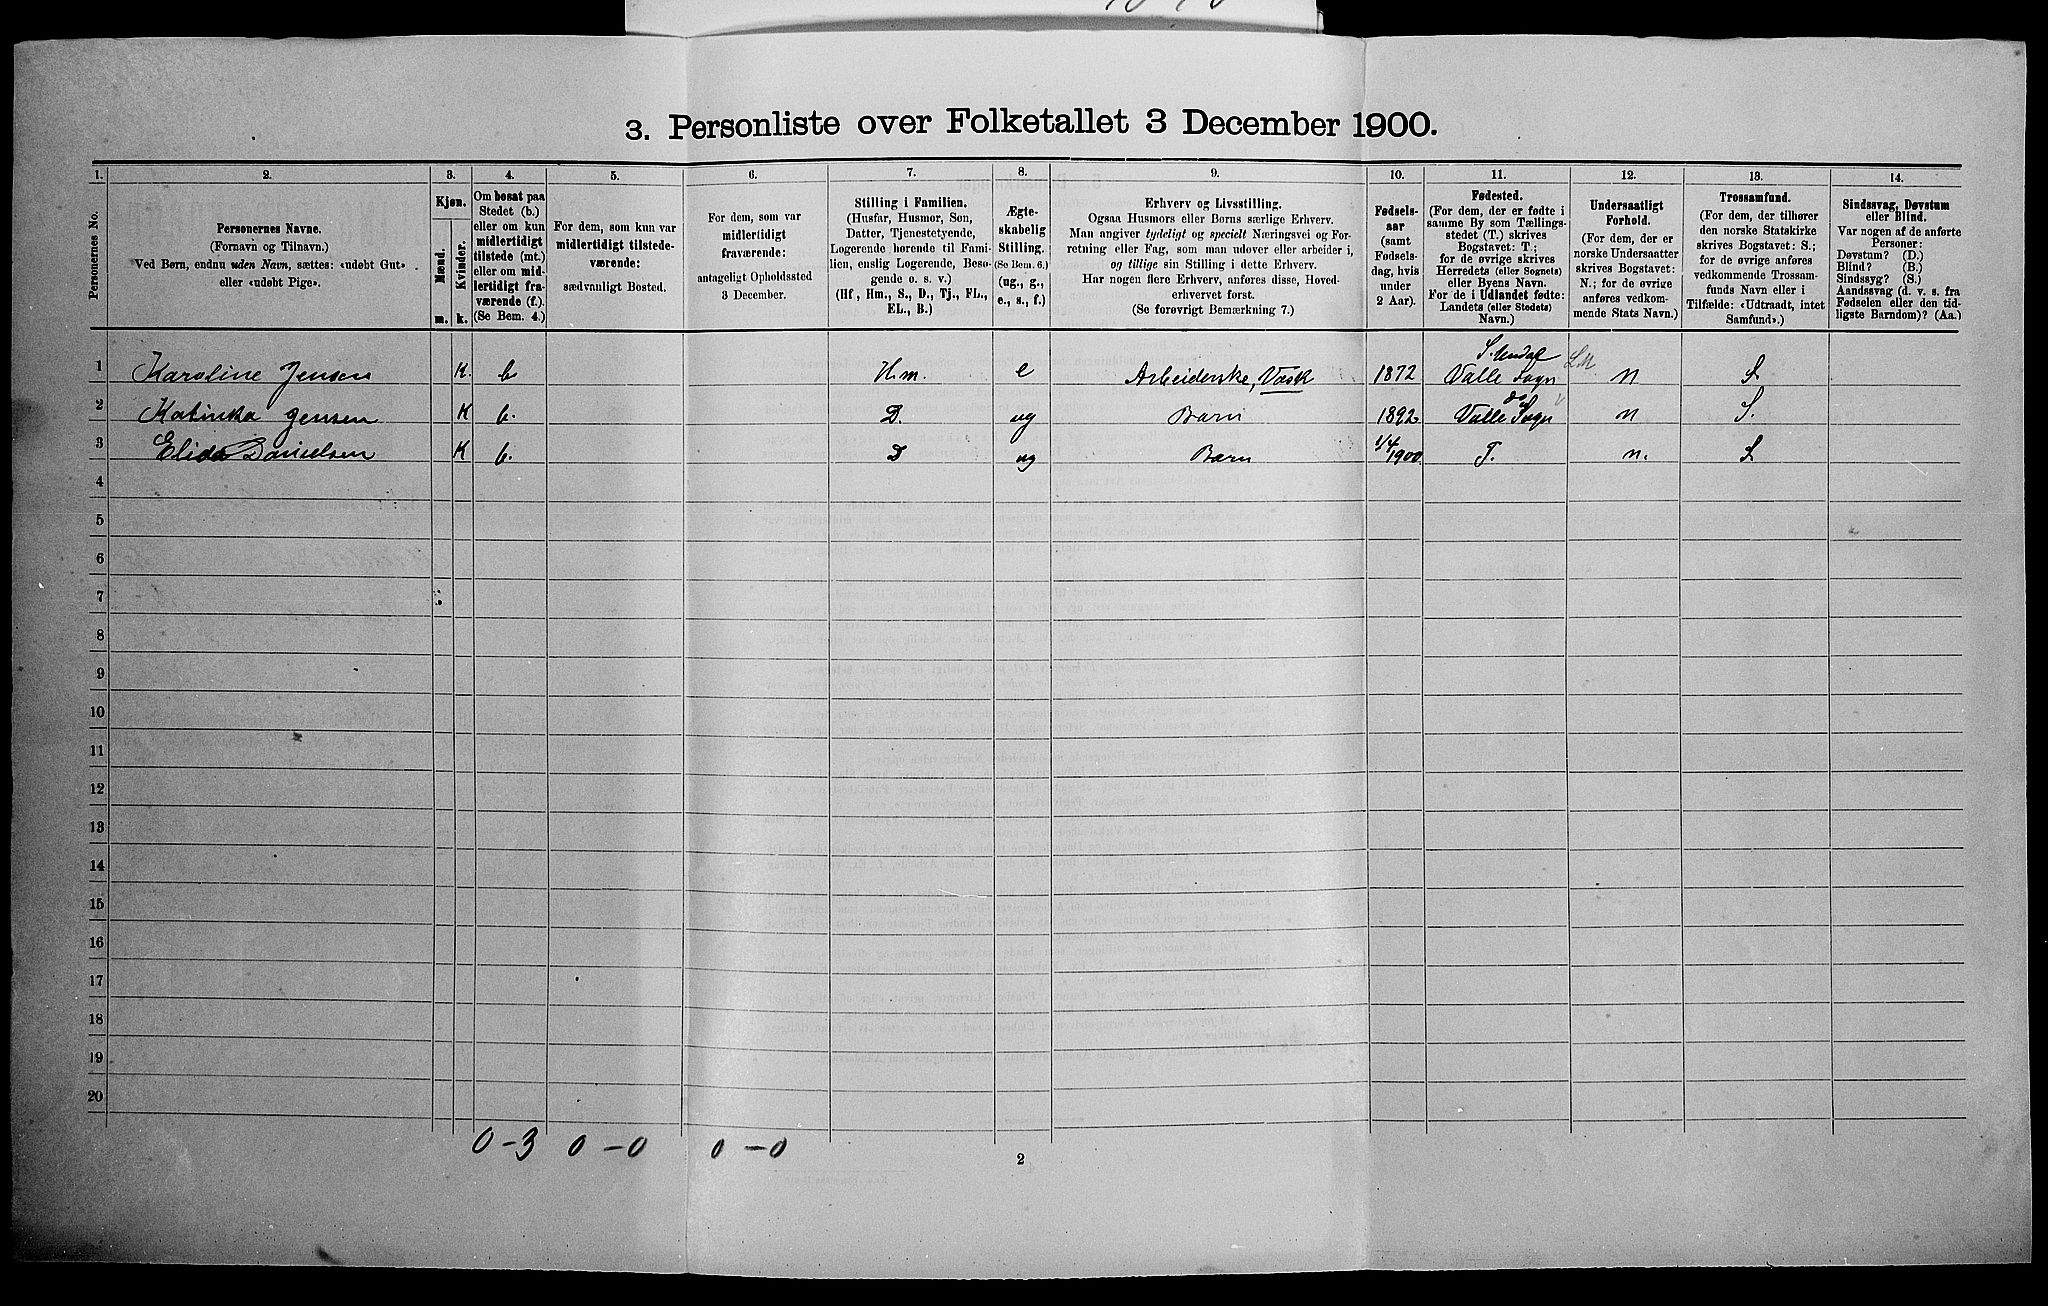 3. Personliste over Folketallet 3 December 1900.
1. 2. 3. 4. 5. 6. 7. 8. 9. 10. 11. 12. 13. 14.
Personernes No.
Personernes Navne.
(Fornavn og Tilnavn.)
Ved Børn, endnu uden Navn, sættes: «udøbt Gut»
eller «udøbt Pige».
Kjøn.
Mænd.
Kvinder.
m. k.
Om bosat paa
Stedet (b.)
eller om kun
midlertidigt
tilstede (mt.)
eller om mid-
lertidigt fra-
værende (f.)
(Se Bem. 4.)
For dem, som kun var
midlertidigt tilstede-
værende:
sædvanligt Bosted.
For dem, som var
midlertidigt
fraværende:
antageligt Opholdssted
3 December.
Stilling i Familien.
(Husfar, Husmor, Søn,
Datter, Tjenestetyende,
Logerende hørende til Fami-
lien, enslig Logerende, Besø-
gende o. s. v.)
(Hf, Hm., S., D., Tj., FL.,
EL., B.)
Ægte-
skabelig
Stilling.
(Se Bem. 6.)
(ug., g.,
e., s., f.)
Erhverv og Livsstilling.
Ogsaa Husmors eller Børns særlige Erhverv.
Man angiver tydeligt og specielt Næringsvei og For-
retning eller Fag, som man udover eller arbeider i,
og tillige sin Stilling i dette Erhverv.
Har nogen flere Erhverv, anføres disse, Hoved-
erhvervet først.
(Se forøvrigt Bemærkning 7.)
Fødsels-
aar
(samt
Fødsels-
dag, hvis
under
2 Aar).
Fødested.
(For dem, der er fødte i
samme By som Tællings-
stedet (T.) skrives
Bogstavet: T;
for de øvrige skrives
Herredets (eller Sognets)
eller Byens Navn.
For de i Udlandet fødte:
Landets (eller Stedets)
Navn.)
Undersaatligt
Forhold.
(For dem, der er
norske Undersaatter
skrives Bogstavet:
N.; for de øvrige
anføres vedkom-
mende Stats Navn.)
Trossamfund.
(For dem, der tilhører
den norske Statskirke
skrives Bogstavet: S.;
for de øvrige anføres
vedkommende Trossam-
funds Navn eller i
Tilfælde: «Udtraadt, intet
Samfund».)
Sindssvag, Døvstum
eller Blind.
Var nogen af de anførte
Personer:
Døvstum? (D.)
Blind? (B.)
Sindssyg? (S.)
Aandssvag (d. v. s. fra
Fødselen eller den tid-
ligste Barndom)? (Aa.)
S. Undal
1 Karoline Jensen K. b Hm. e Arbeiderske, Vask 1872 Valle Sogn n S.
do
2 Katinka Jensen K b. D. ug Barn 1892 Valle Sogn n S.
3 Elida Danielsen K b. D ug Barn 1/4 1900. T. n. S
4
5
6
7
8
9
10
11
12
13
14
15
16
17
18
19
20
0-3 0-0 0-0
2